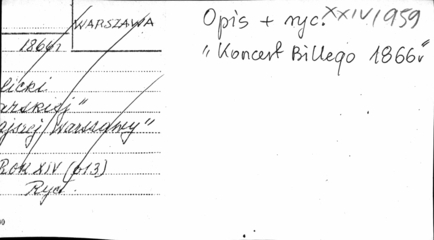 WARSZAWA
1866r
licki
arskiej"
ejszej Warszawy"
ROK XIV (613)
Ryc.
Opis + ryc. XXIV/1959
"Koncert Billego 1866r"